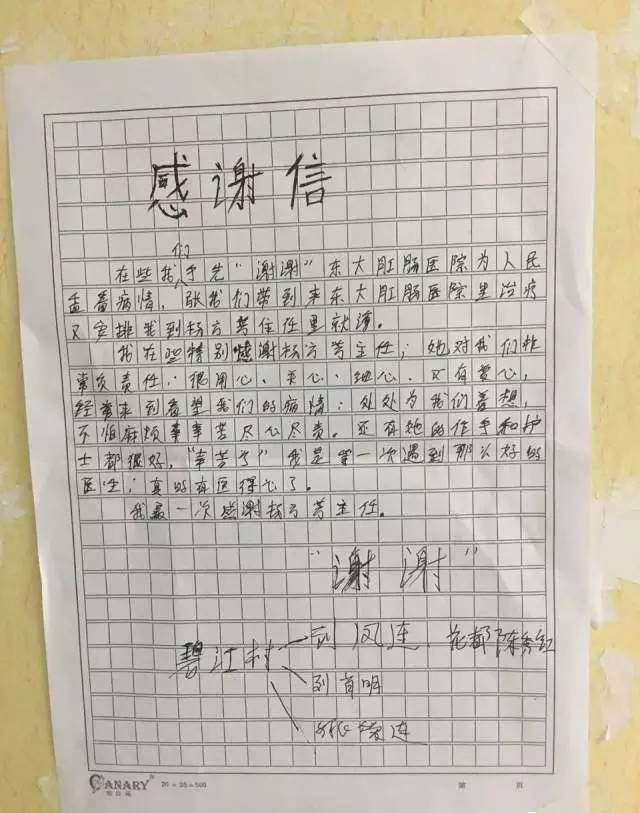 感谢信
们
在些我手先“谢谢”东大肛肠医院为人民
查病情，张我们带到来东大肛肠医院里治疗
又安排我到杨方芳住任里就读。
我在些特别感谢杨方芳主任；她对我们非
常负责任；很用心、关心、细心、又有爱心，
经常来到看望我们的病情；处处为我们着想，
不怕麻烦辛辛苦尽心尽责。还有她的作手和护
士都很好，“幸苦了”我是第一次遇到那么好的
医生；真的有医得心了。
我最一次感谢杨方芳主任。
“谢谢”
碧江村 刘凤连、花都陈
明
连
CANARY 20×25=500 第 页